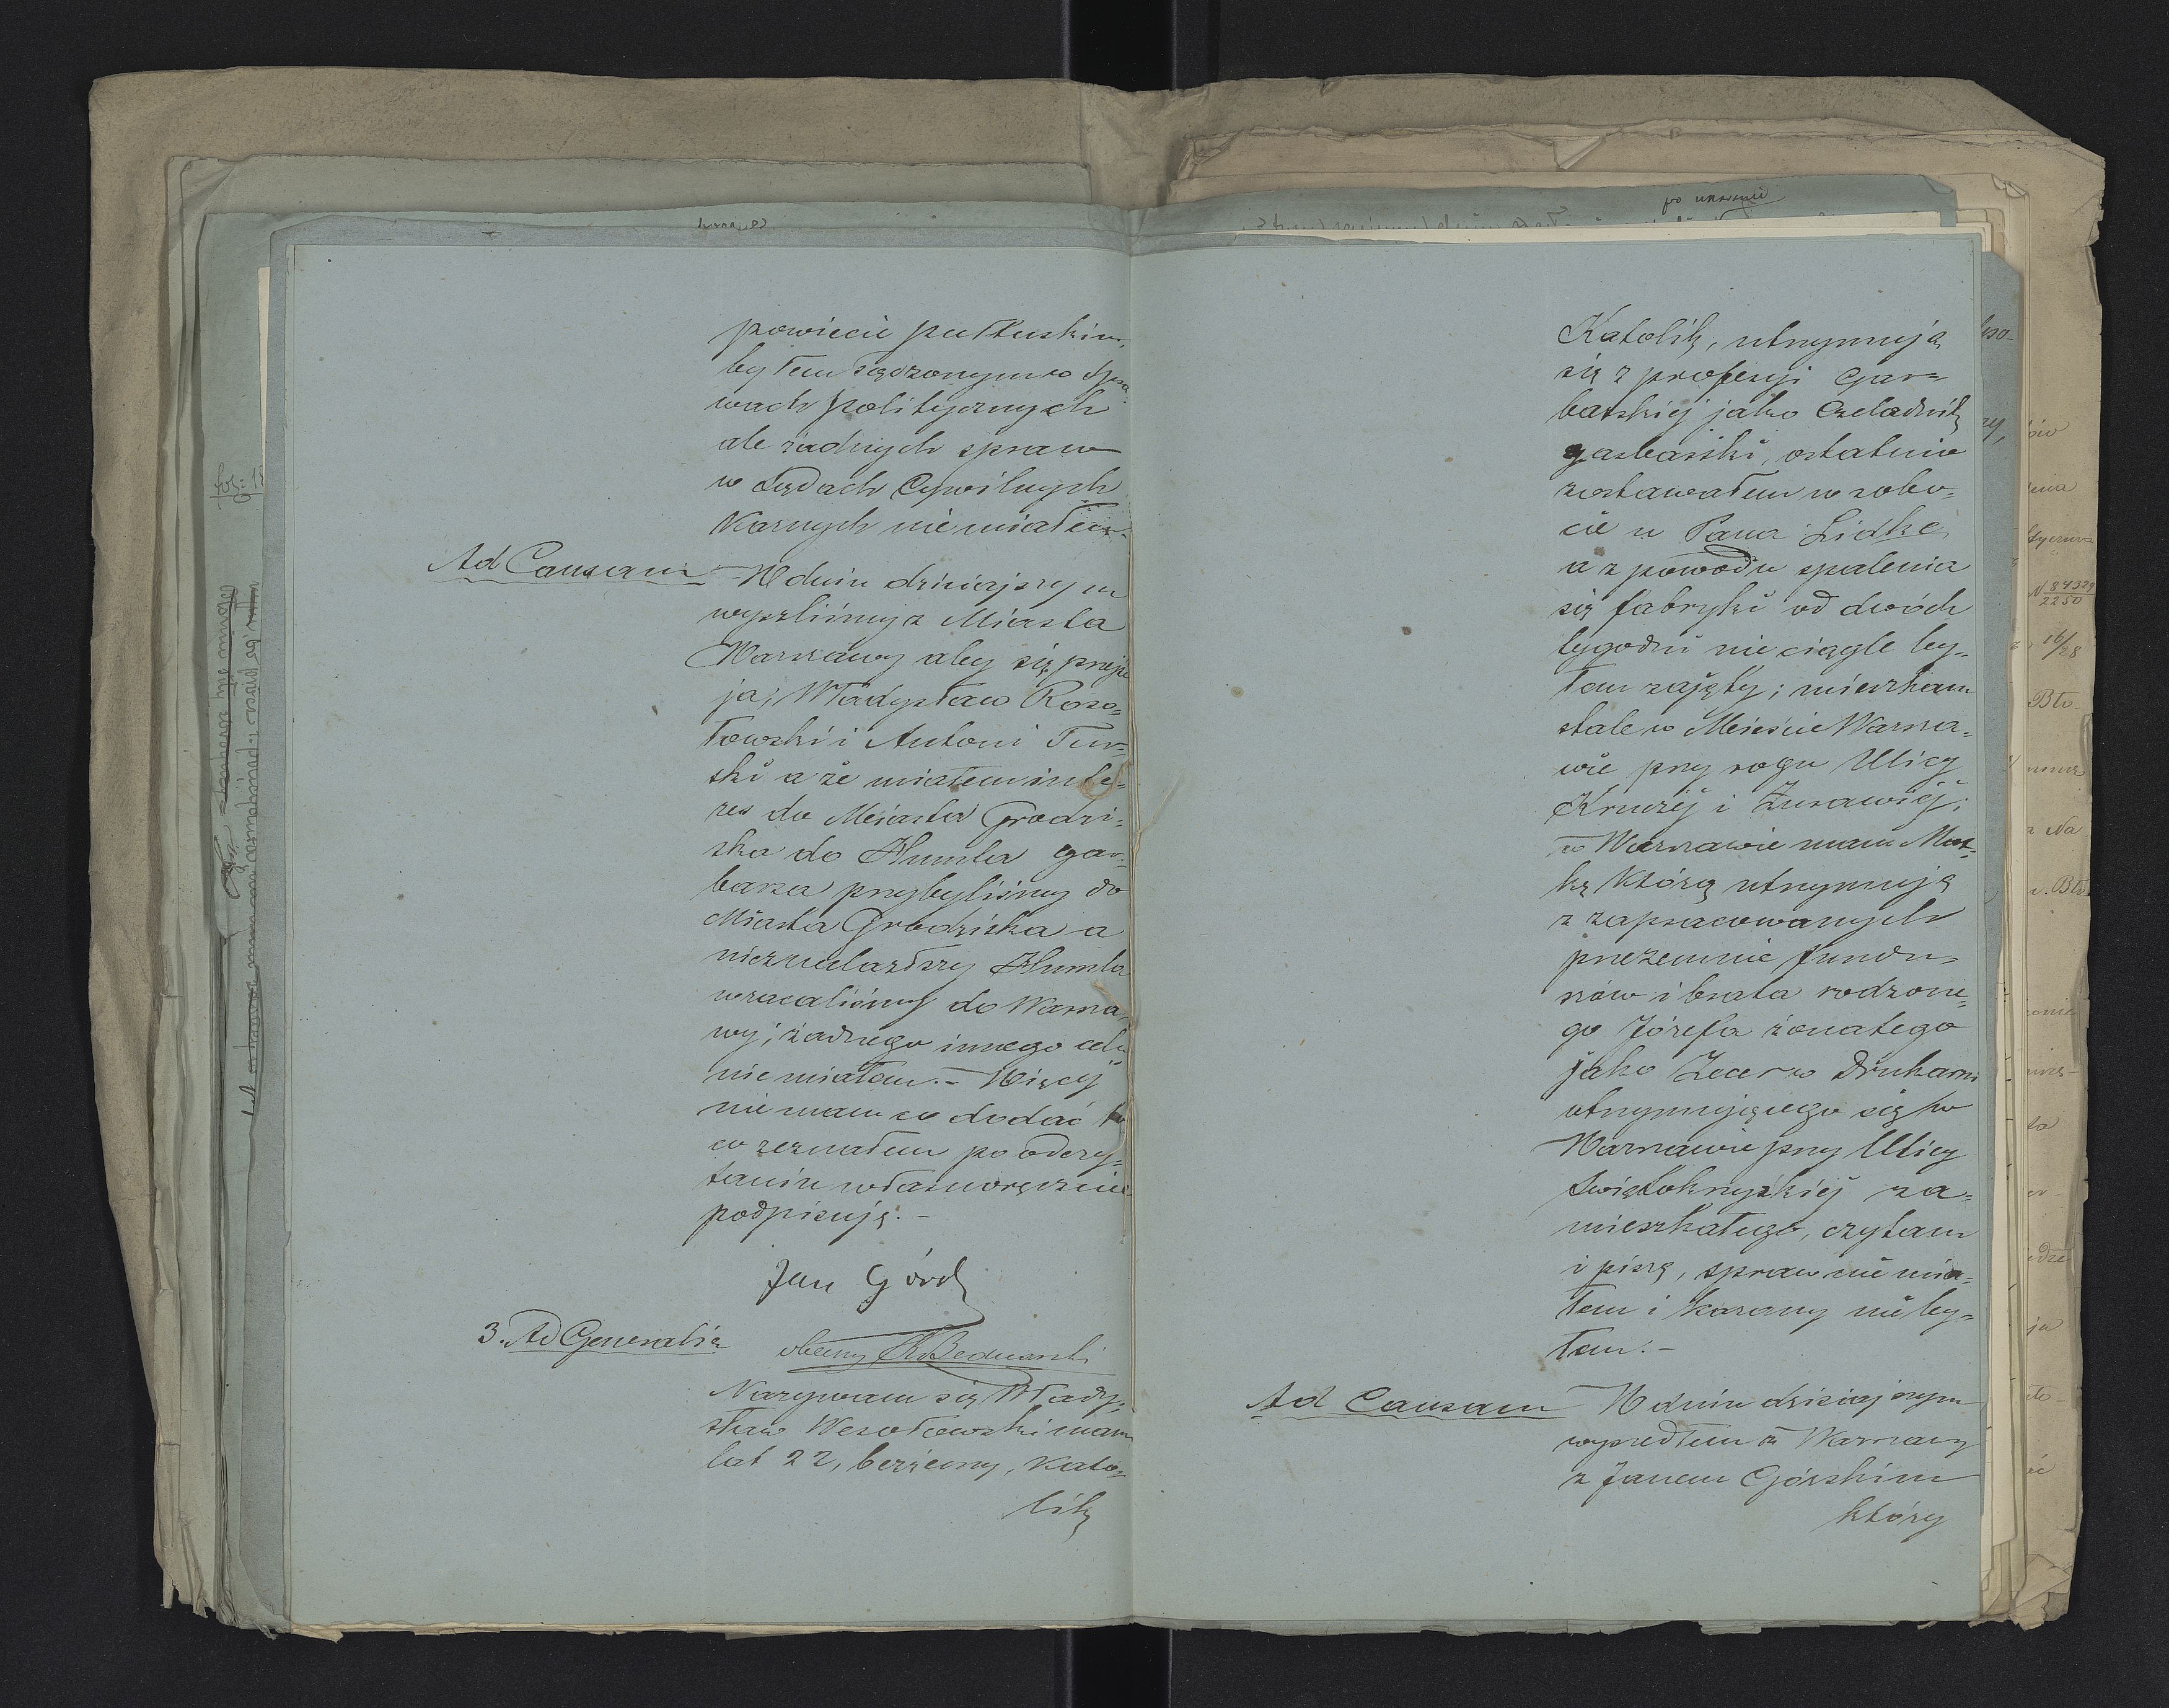 powiecie pułtuskim,
byłem sądzonym w spra-
wach politycznych
ale żadnych spraw
w Sądach Cywilnych
Karnych nie miałem.-
Ad Causam - W dniu dzisiajszym
wyszliśmy z Miasta
Warszawy aby się przejść
ja, Władysław Roso=
łowski i Antoni Tur=
ski a że miałem inte=
res do Miasta Grodzi=
ska do Humla gar=
barza przybyliśmy do
Miasta Grodziska a
nieznalazłszy Humla
wracaliśmy do Warsza
wy; żadnego innego celu
nie miałem.- Więcej
nie mam co dodać to
co zeznałem po odczy=
taniu własnoręcznie
podpisuję.-
Jan Górs
obecny Bednarski
3. Ad Generalia
Nazywam się Włady=
sław Wesołowski mam
lat 22, bezżenny, kato=
lik
Katolik, utrzymuję
się z profesyi Gar=
barskiej jako Czeladnik
garbarski, ostatnio
zostawałem w robo=
cie u Pana Lidke,
a z powodu spalenia
się fabryki od dwóch
tygodni nie ciągle by=
łem zajęty; mieszkam
stale w Mieście Warsza=
wie przy rogu Ulicy
Kruczej i Żurawiej;
w Warszawie mam Mat=
kę którą utrzymuję
z zapracowanych
przezemnie fundu=
szów i brata rodzone=
go Józefa żonatego
jako Zecer w Drukarni
utrzymującego się w
Warszawie przy Ulicy
Świętokrzyskiej za=
mieszkałego, czytam
i piszę, spraw nie mia=
łem i karany nie by=
łem.-
Ad Causam - W dniu dzisiajszym
wyszedłem z Warszawy
z Janem Górskim
który